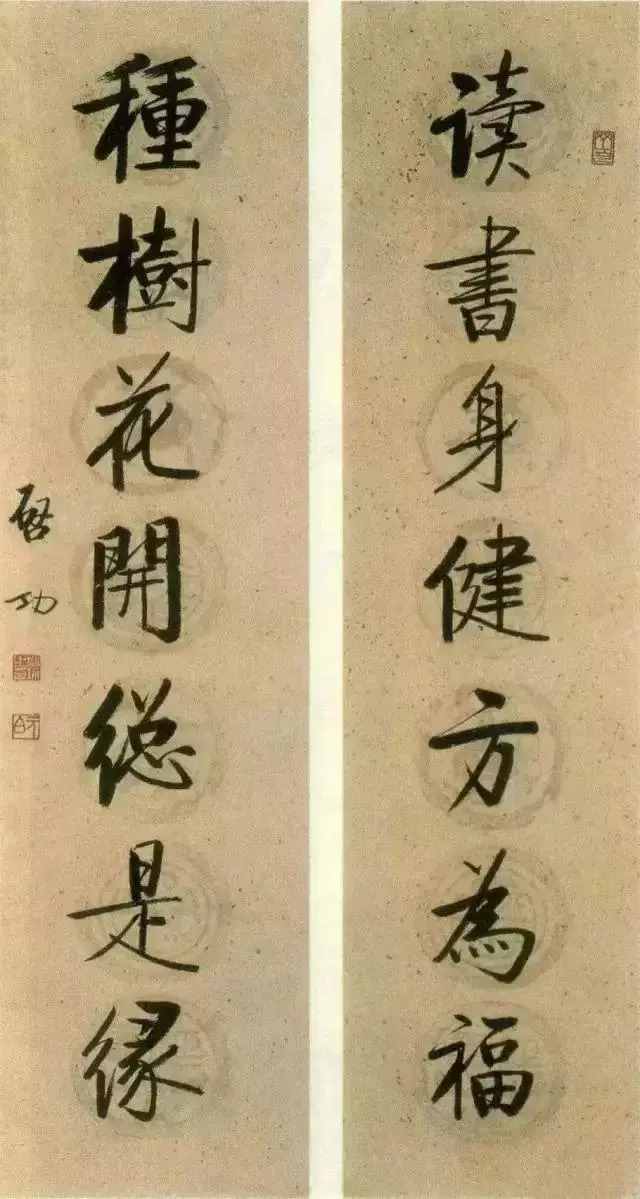 读书身健方為福
種樹花開総是緣
啓功